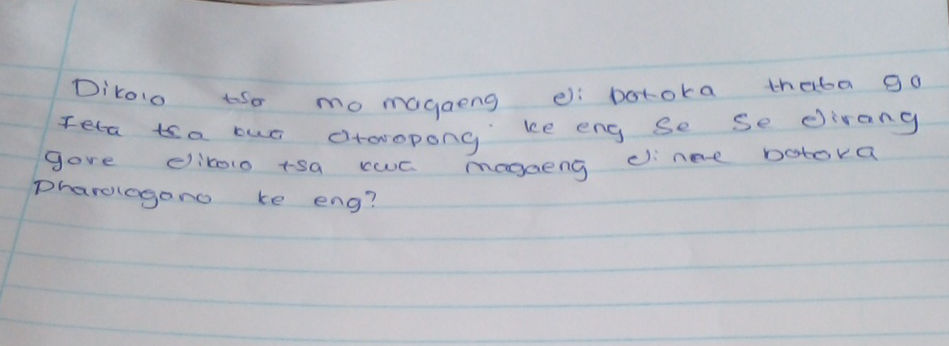 Dikolo tsa mo magaeng di botoka thata go
feta tsa kua ditoropong ke eng se se dirang
gore dikolo tsa kwa magaeng di nne botoka
Pharologano ke eng?